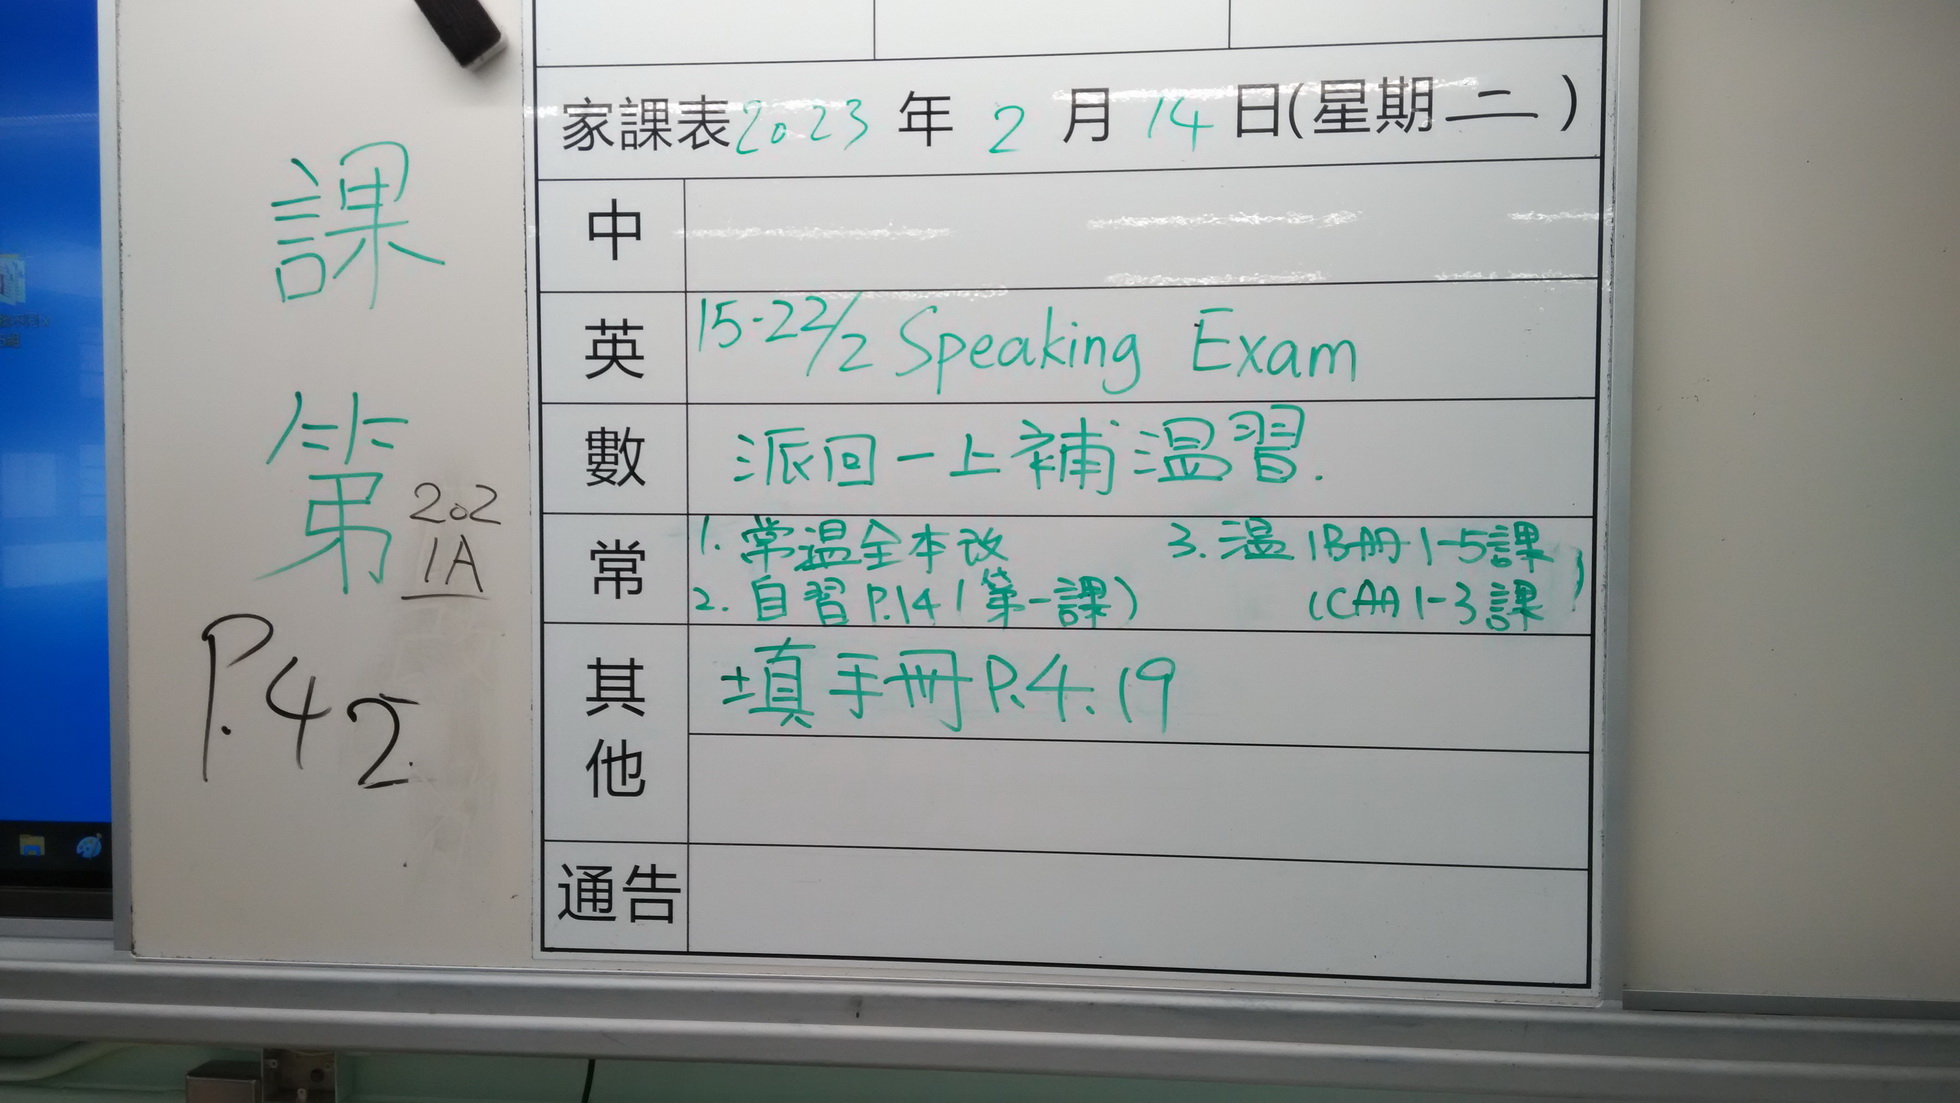 課
第
202
1A
P.42
家課表2023年2月14日(星期二)
中
英 15-22/2 Speaking Exam
數 派回一上補溫習.
常 1. 常溫全本改 3. 溫1B冊1-5課
2. 自習P.14(第一課) 1C冊1-3課
其他 填手冊P.4.19
通告